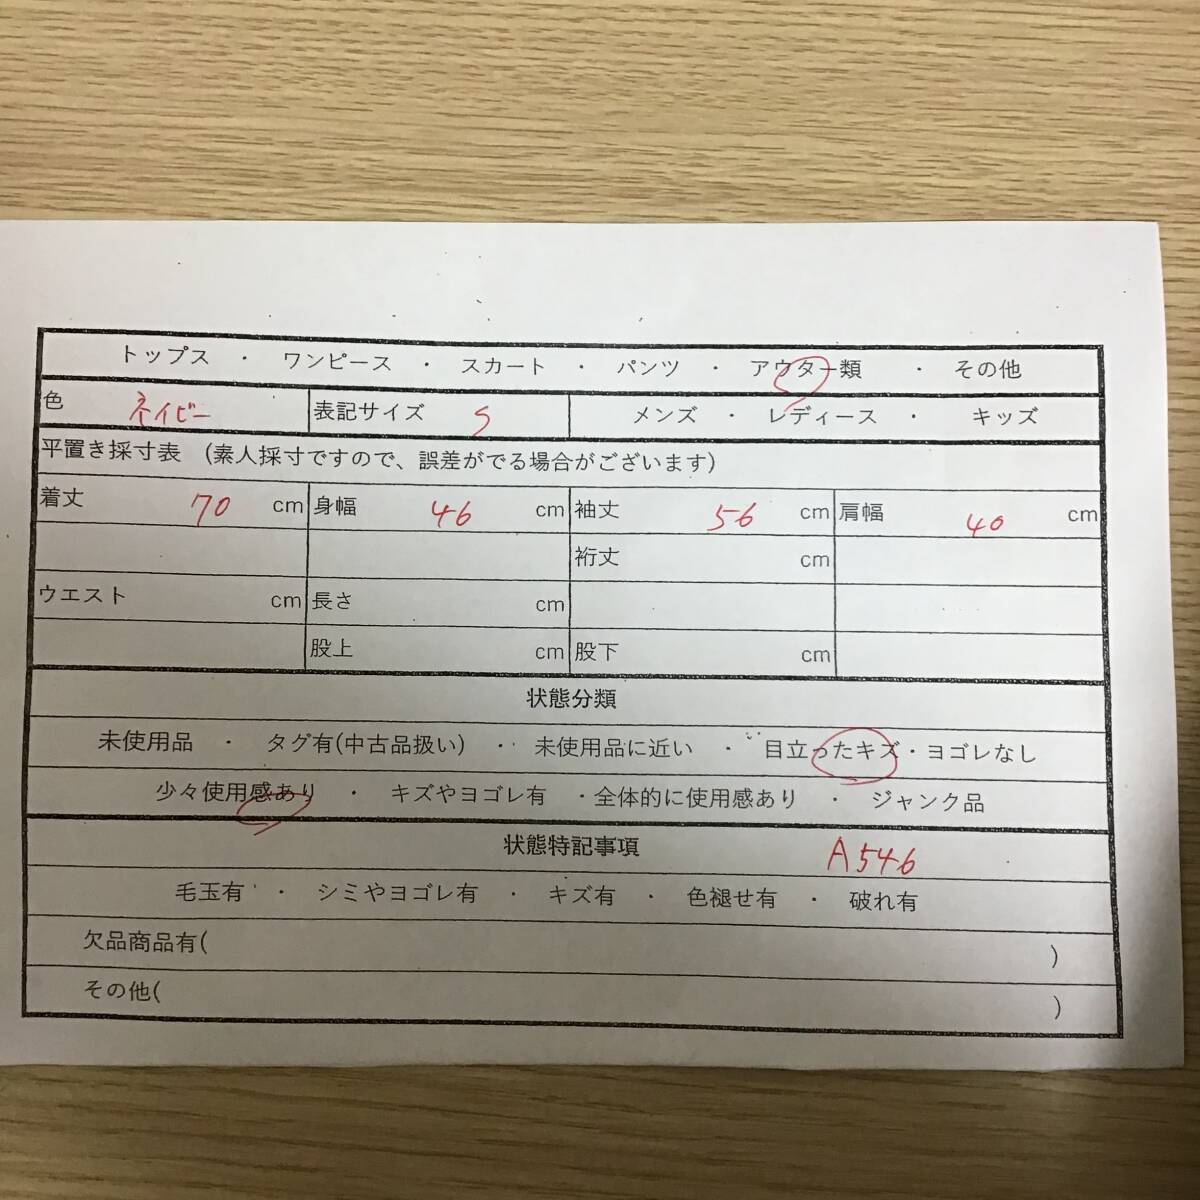 トップス ・ ワンピース ・ スカート ・ パンツ ・ アウター類 ・ その他
色 ネイビー 表記サイズ S メンズ ・ レディース ・ キッズ
平置き採寸表 (素人採寸ですので、誤差がでる場合がございます)
着丈 70 cm 身幅 46 cm 袖丈 56 cm 肩幅 40 cm
裄丈 cm
ウエスト cm 長さ cm
股上 cm 股下 cm
状態分類
未使用品 ・ タグ有(中古品扱い) ・ 未使用品に近い ・ 目立ったキズ・ヨゴレなし
少々使用感あり ・ キズやヨゴレ有 ・全体的に使用感あり ・ ジャンク品
状態特記事項 A546
毛玉有 ・ シミやヨゴレ有 ・ キズ有 ・ 色褪せ有 ・ 破れ有
欠品商品有( )
その他( )